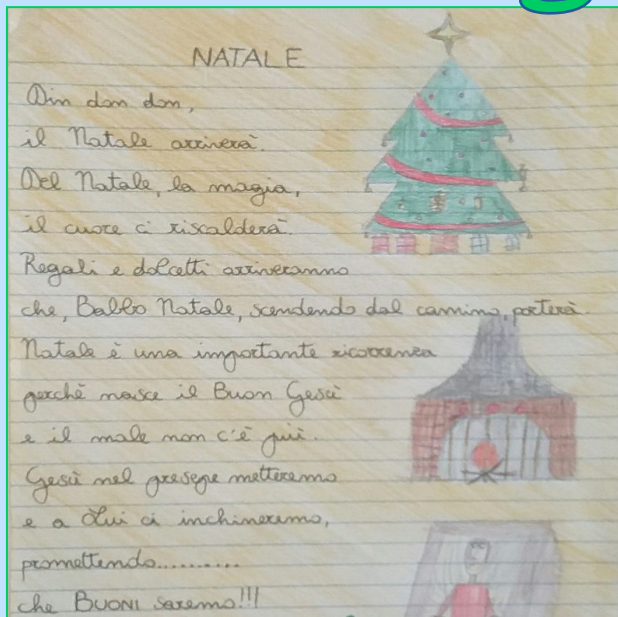 NATALE
Din don dan,
il Natale arriverà.
Del Natale, la magia,
il cuore ci riscalderà.
Regali e dolcetti arriveranno
che, Babbo Natale, scendendo dal camino, porterà.
Natale è una importante ricorrenza
perchè nasce il Buon Gesù
e il male non c'è più.
Gesù nel presepe metteremo
e a Lui ci inchineremo,
promettendo..........
che BUONI saremo!!!